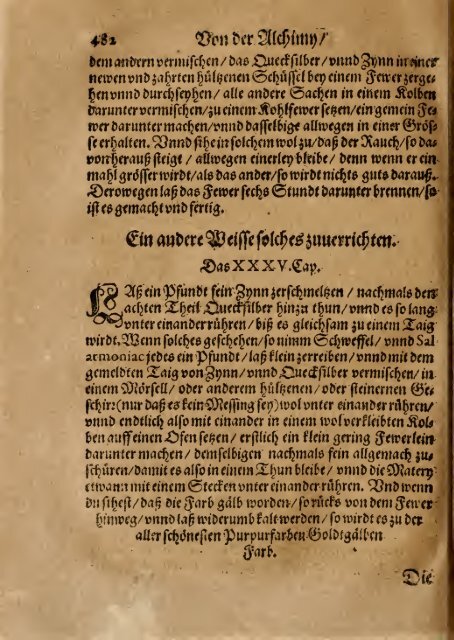 482 Von der Alchimy/
dem andern vermischen / das Quecksilber / vnnd Zynn in einer
newen vnd zahrten hültzenen Schüssel bey einem Fewer zerge-
hen vnnd durchseyhen / alle andere Sachen in einem Kolben
darunter vermischen / zu einem Kohlfewer setzen / ein gemein Fe-
wer darunter machen / vnnd dasselbige allwegen in einer Grös-
se erhalten. Vnnd sihe in solchem wol zu / daß der Rauch / so da
von herauß steigt / allwegen einerley bleibe / denn wenn er ein-
mahl grösser wirdt / als das ander / so wirdt nichts guts darauß.
Derowegen laß das Fewer sechs Stundt darunter brennen / so
ist es gemacht vnd fertig.
Ein andere Weisse solches zuuerrichten.
Das XXXV. Cap.
LAß ein Pfundt fein Zynn zerschmeltzen / nachmals den
achten Theil Quecksilber hinzu thun / vnnd es so lang
vnter einander rühren / biß es gleichsam zu einem Taig
wirdt. Wenn solches geschehen / so nimm Schweffel / vnnd Sal
armoniac jedes ein Pfundt / laß klein zerreiben / vnnd mit dem
gemeldten Taig von Zynn / vnnd Quecksilber vermischen / in
einem Mörsell / oder anderem hültzenen / oder steinernen Ge-
schirr (nur daß es kein Messing sey) wol vnter einander rühren /
vnnd endtlich also mit einander in einem wol verkleibten Kol-
ben auff einen Ofen setzen / erstlich ein klein gering Fewerlein
darunter machen / demselbigen nachmals fein allgemach zu-
schüren / damit es also in einem Thun bleibe / vnnd die Matery
etwann mit einem Stecken vnter einander rühren. Vnd wenn
du sihest / daß die Farb gälb worden / so rücks von dem Fewer
hinweg / vnnd laß widerumb kalt werden / so wirdt es zu der
aller schönesten Purpurfarben Goldtgälben
Farb.
Die